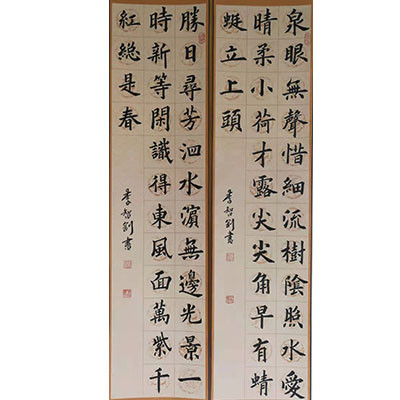 泉眼無聲惜細流樹陰照水愛
晴柔小荷才露尖尖角早有蜻
蜓立上頭
李智書
勝日尋芳泗水濱無邊光景一
時新等閑識得東風面萬紫千
紅総是春
李智書